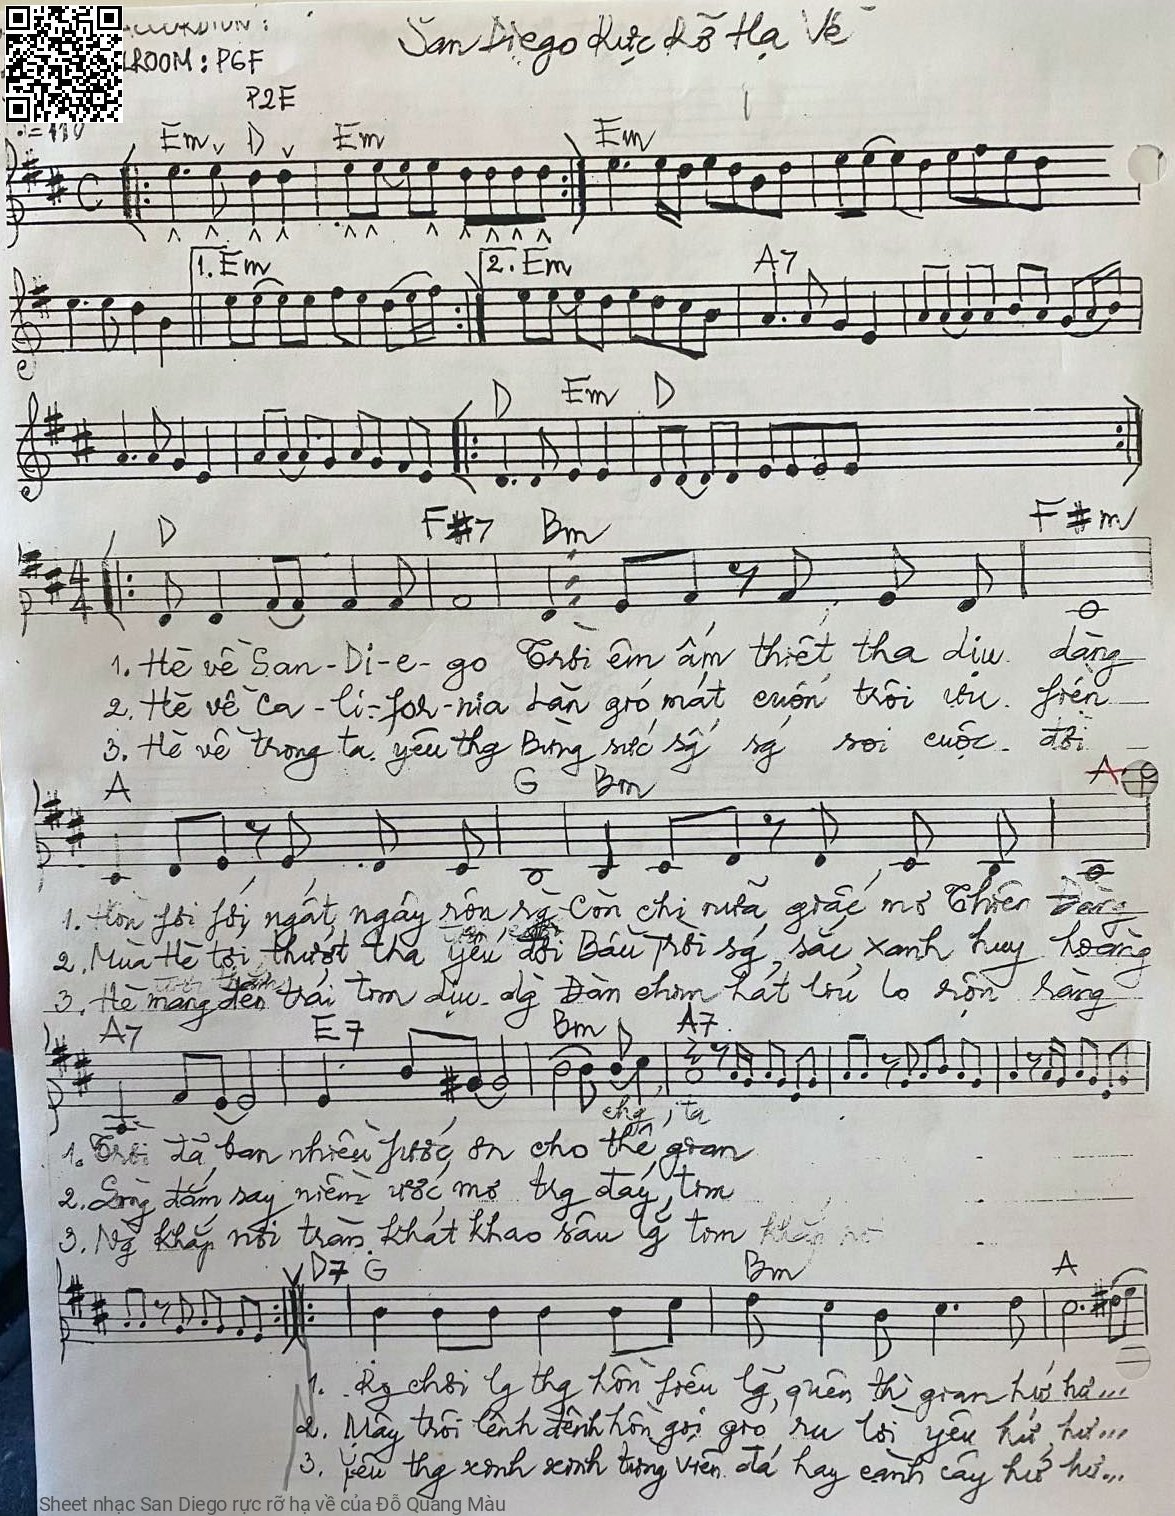 ACCORDION:
P6F
San Diego Rực Rỡ Hạ Về
P2E
Em D Em Em
C
1. Em 2. Em A7
D Em D
D F#7 Bm F#m
4/4
1. Hè về San-Di-e-go Trời êm ấm thiết tha dịu dàng
2. Hè về Ca-li-for-nia Làn gió mát cuốn trôi ưu phiền
3. Hè về trong ta yêu thg Bừng sức sg sg sợi cuộc đời
A G Bm A
1. Hồn phơi phới, ngất ngây rộn rg Còn chi nữa giấc mơ Thiên Đàng
2. Mùa Hè tới thướt tha yêu đời Bầu Trời sg, sắc xanh huy hoàng
3. Hè mang đến trái tim dịu dg Đàn chim hát líu lo rộn ràng
A7 E7 Bm D A7
1. Trời đã ban nhiều phước ơn cho thế gian
2. Lòng đắm say niềm ước mơ trg đáy tim
3. Ng khắp nơi tràn khát khao sâu lg tim
D7 G Bm A
1. Rg chơi lg thg hồn phiêu lg, quên thì gian hứ hư...
2. Mây trôi lênh đênh hồn gọi gió ru lời yêu hứ hư...
3. Yêu thg xinh xinh từng viên đá hay cành cây hứ hư...
Sheet nhạc San Diego rực rỡ hạ về của Đỗ Quang Màu